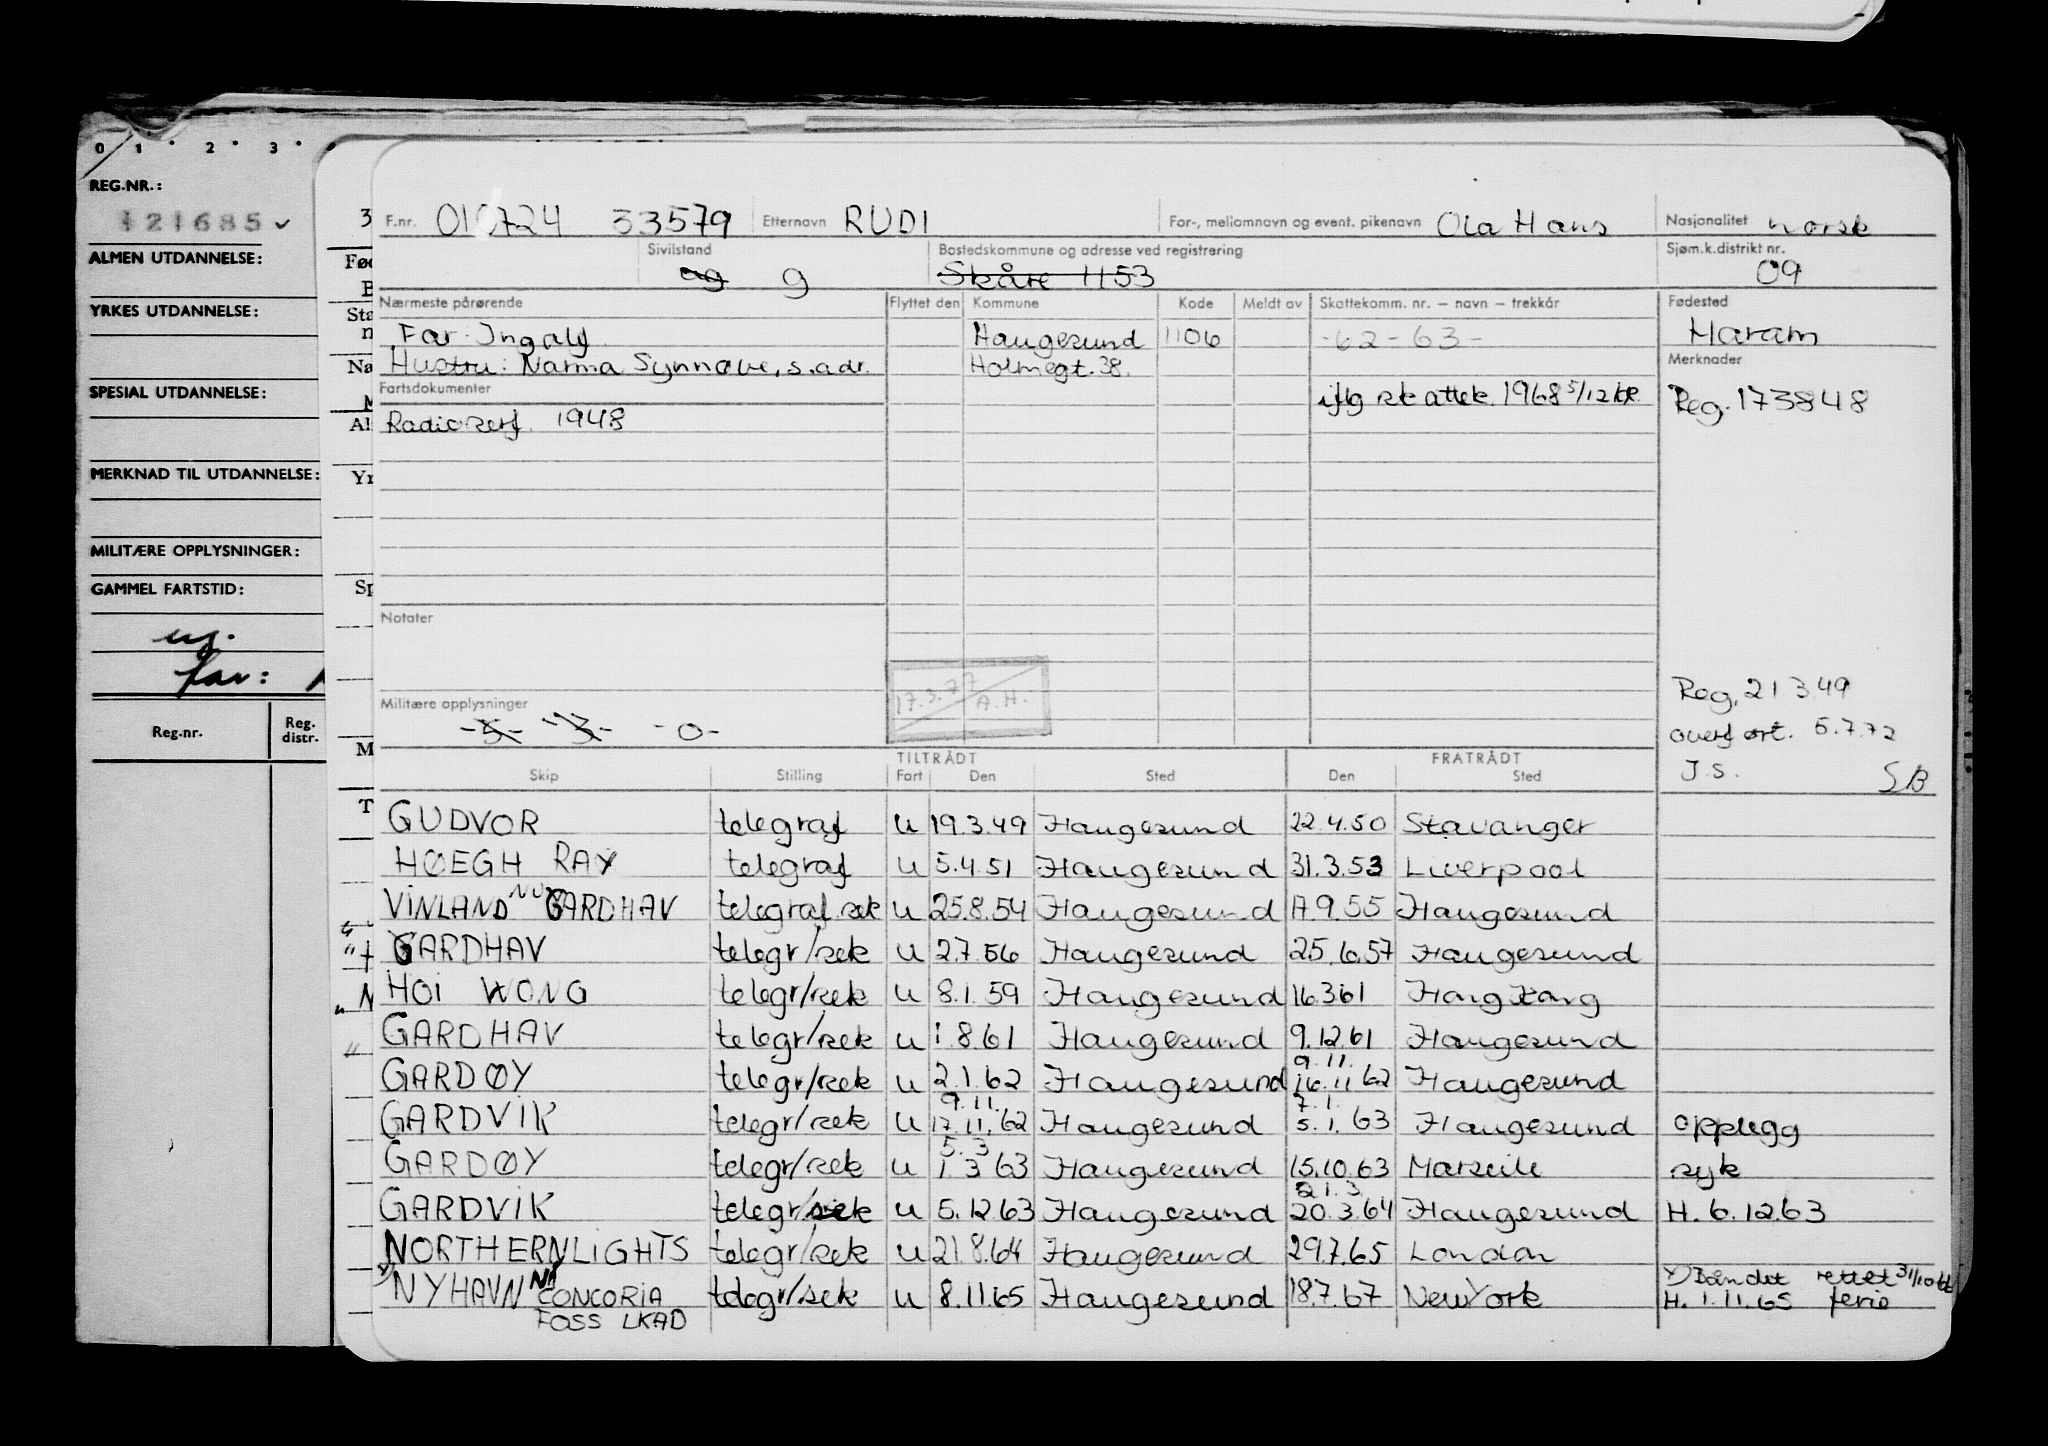 0 1 2 3
REG.NR.:
121685
ALMEN UTDANNELSE:
YRKES UTDANNELSE:
SPESIAL UTDANNELSE:
MERKNAD TIL UTDANNELSE:
MILITÆRE OPPLYSNINGER:
GAMMEL FARTSTID:
ug.
far:
Reg.nr. Reg. distr.
F.nr. 010724 33579 Etternavn RUDI For-, mellomnavn og event. pikenavn Ola Hans Nasjonalitet norsk
Sivilstand ug g Bostedskommune og adresse ved registrering Skåre 1153 Sjøm.k.distrikt nr. 09
Nærmeste pårørende Flyttet den Kommune Kode Meldt av Skattekomm. nr. – navn – trekkår Fødested
Far: Ingolf Haugesund 1106 -62-63- Haram
Hustru: Narma Synnøve, s.adr. Holmegt. 38. Merknader
Fartsdokumenter iflg skattek. 1968 5/12 kR. Reg. 173848
Radiosert. 1948
Notater
17.3.77 A.H.
Reg. 21 3.49
Militære opplysninger overf ort. 5.7.72
-5- -3- -0-
J.S. SB
TILTRÅDT FRATRÅDT
Skip Stilling Fart Den Sted Den Sted
GUDVOR telegraf u 19.3.49 Haugesund 22.4.50 Stavanger
HØEGH RAY telegraf u 5.4.51 Haugesund 31.3.53 Liverpool
VINLAND NU GARDHAV telegraf sek u 25.8.54 Haugesund 17.9.55 Haugesund
GARDHAV telegr/sek u 2.7.56 Haugesund 25.6.57 Haugesund
HOI WONG telegr/sek u 8.1.59 Haugesund 16.3.61 Hong Kong
GARDHAV telegr/sek u 1.8.61 Haugesund 9.12.61 Haugesund
9.11.
GARDØY telegr/sek u 2.1.62 Haugesund 16.11.62 Haugesund
9.11. 7.1.
GARDVIK telegr/sek u 17.11.62 Haugesund 5.1.63 Haugesund opplegg
5.3
GARDØY telegr/sek u 1.3 63 Haugesund 15.10.63 Marseile syk
21.3.
GARDVIK telegr/sek u 5.12.63 Haugesund 20.3.64 Haugesund H. 6.12.63
NORTHERNLIGHTS telegr/sek u 21.8.64 Haugesund 29.7.65 London
x) Båndet rettet 31/10 66
NYHAVN NÅ CONCORIA telegr/sek u 8.11.65 Haugesund 18.7.67 New York H. 1.11.65 ferie
FOSS LKAD